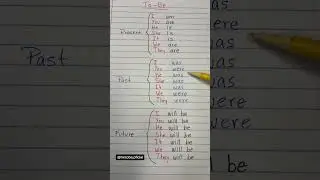 To-Be
Present
I am
You are
He is
She is
It is
We are
They are
Past
I was
You were
He was
She was
It was
We were
They were
Future
I will be
You will be
He will be
She will be
It will be
We will be
They will be